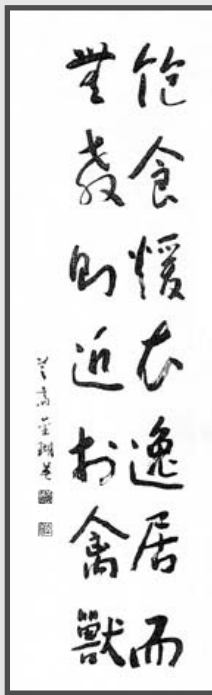 飽食煖衣逸居而
無敎則近於禽獸